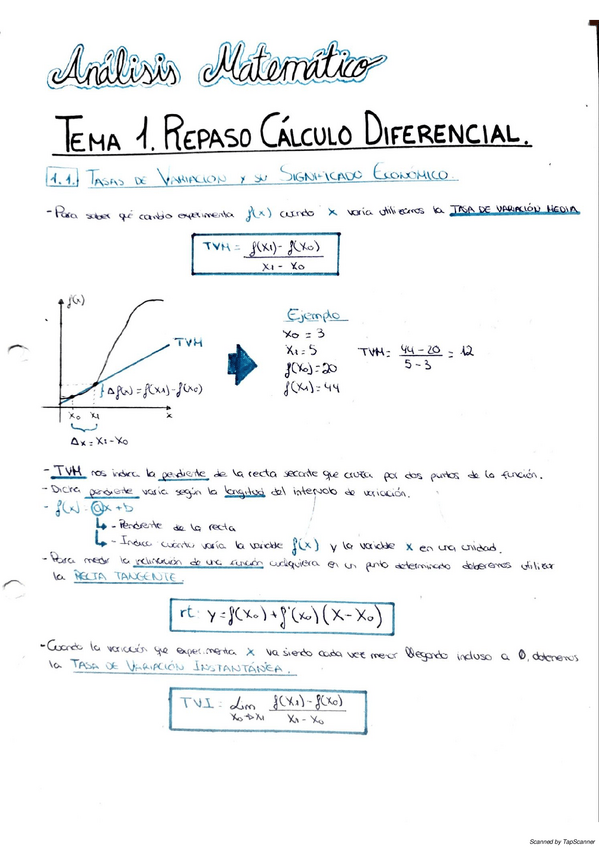 Análisis Matemático
TEMA 1. REPASO CÁLCULO DIFERENCIAL.
1.1. TASAS DE VARIACIÓN Y SU SIGNIFICADO ECONÓMICO.
- Para saber qué cambio experimenta f(x) cuando x varía utilizamos la TASA DE VARIACIÓN MEDIA
TVM = f(x₁) - f(x₀) / x₁ - x₀
f(x)
TVM
Δf(x) = f(x₁) - f(x₀)
x₀ x₁ x
Δx = x₁ - x₀
Ejemplo
x₀ = 3
x₁ = 5
f(x₀) = 20
f(x₁) = 44
TVM = 44 - 20 / 5 - 3 = 12
- TVM nos indica la pendiente de la recta secante que cruza por dos puntos de la función.
- Dicha pendiente varía según la longitud del intervalo de variación.
- f(x) = ax + b
- Pendiente de la recta
- Indica cuánto varía la variable f(x) y la variable x en una unidad.
- Para medir la inclinación de una función cualquiera en un punto determinado deberemos utilizar
la RECTA TANGENTE.
rt: y = f(x₀) + f'(x₀) (x - x₀)
- Cuando la variación que experimenta x va siendo cada vez menor llegando incluso a 0, obtenemos
la TASA DE VARIACIÓN INSTANTÁNEA.
TVI: Lim x₀→x₁ f(x₁) - f(x₀) / x₁ - x₀
Scanned by TapScanner